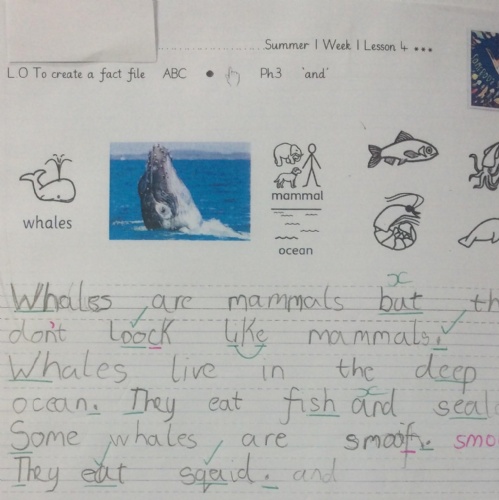 Summer 1 Week 1 Lesson 4 •••
L O To create a fact file ABC • Ph3 'and'
whales
mammal
ocean
x
Whales are mammals but
don't loock like mammals.
Whales live in the deep
x
ocean. They eat fish and
Some whales are smooth. smo
They eat sqaid. and